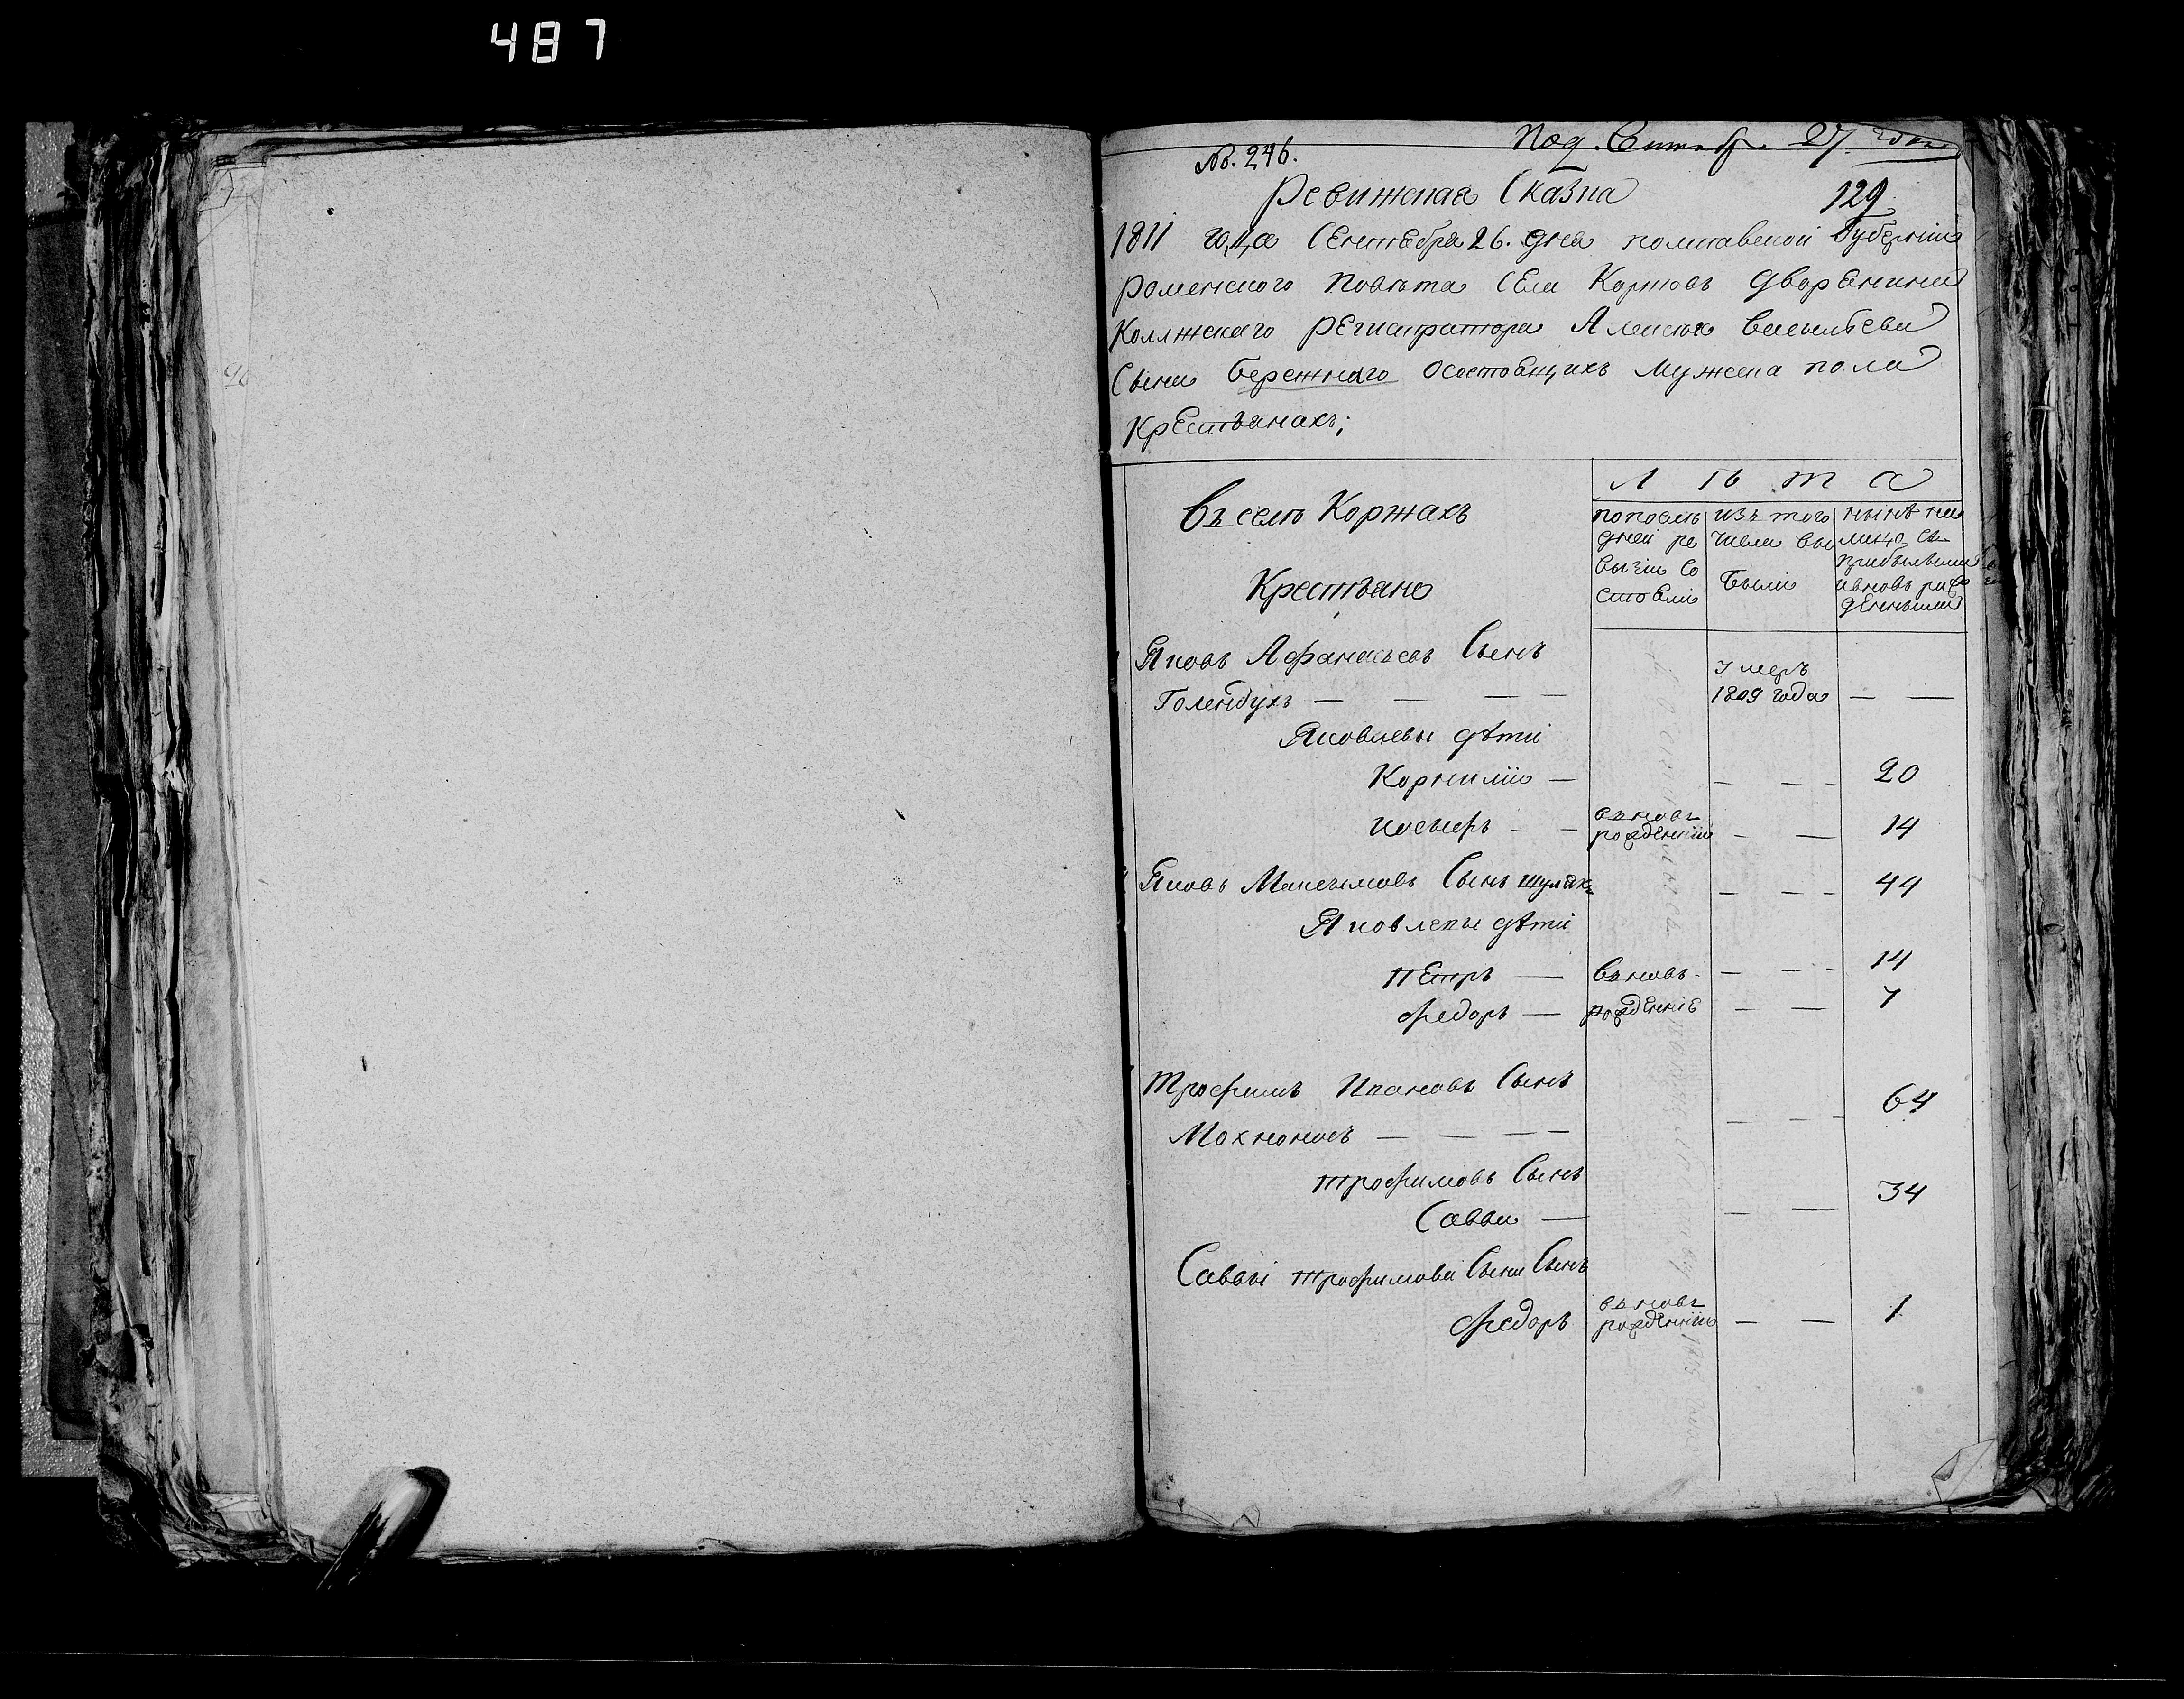 487
Под. Сентябр. 27 дня
№. 246.
Ревижская Сказка
129
1811 года Сентебра 26. дня полтавской Губерніи
роменского повѣта Села Коржовъ дворенина
Коллжскаго регистратора Алексѣя васильева
Сына бережнаго осостоящихъ мужеска пола
Крестьянахъ;
Л ѣ т а
въ селѣ Коржахъ
Крестьяне
по послѣ
дней ре
вызіи со
стояли
изъ того
числа вы
были
нынѣ на
лицо съ
прибылыми
ивновь рож
денными
Яковъ Афанасьевъ Сынъ
Голендухъ — — — —
умеръ
1809 года — —
Яковлевы дѣти
Корнилій — — — — 20
иосыфъ — — вновь
рожденній — — 14
Яковъ Максымовъ Сынъ шулякъ — — 44
Яковлевы дѣти
Петръ — вновь — — — 14
Федоръ — рожденніе — — 7
Трофимъ Ивановъ Сынъ
Мохноносъ — — — — — — 64
трофимовъ Сынъ
Савва — — — 34
Саввы трофимова Сына Сынъ
Федоръ вновь
рожденній — — 1